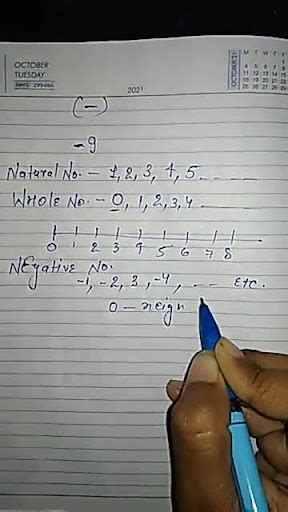 OCTOBER
TUESDAY
2021
OCTOBER'21
M T W T F
4 5 6 7 8
11 12 13 14 15
18 19 20 21 22
25 26 27 28 29
(-)
-9
Natural No. - 1, 2, 3, 4, 5 ----
Whole No. - 0, 1, 2, 3, 4 ----
0 1 2 3 4 5 6 7 8
NEgative No.
-1, -2, 3, -4, --- etc.
0 - neign